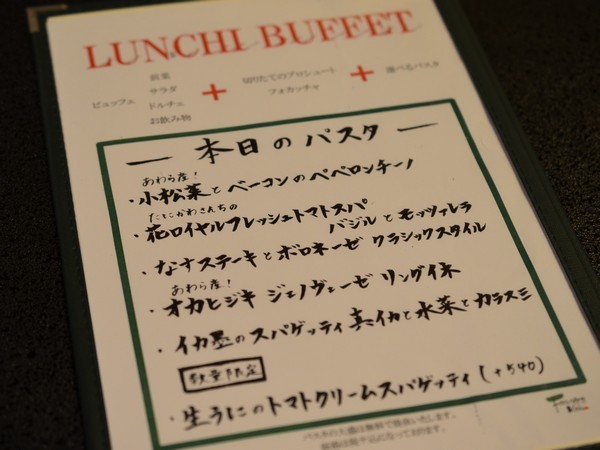 LUNCHI BUFFET
前菜
サラダ
ビュッフェ
ドルチェ
お飲み物
+
切りたてのプロシュート
フォカッチャ
+
選べるパスタ
— 本日のパスタ —
あわら産!
・小松菜とベーコンのペペロンチーノ
たにかわさんちの
・花ロイヤルフレッシュトマトスパ
バジルとモッツァレラ
・なすステーキとボロネーゼ クラシックスタイル
あわら産!
・オカヒジキ ジェノヴェーゼ リングイネ
・イカ墨のスパゲッティ 真イカと水菜とカラスミ
数量限定
・生うにのトマトクリームスパゲッティ (+540)
パスタの大盛は無料で提供いたします。